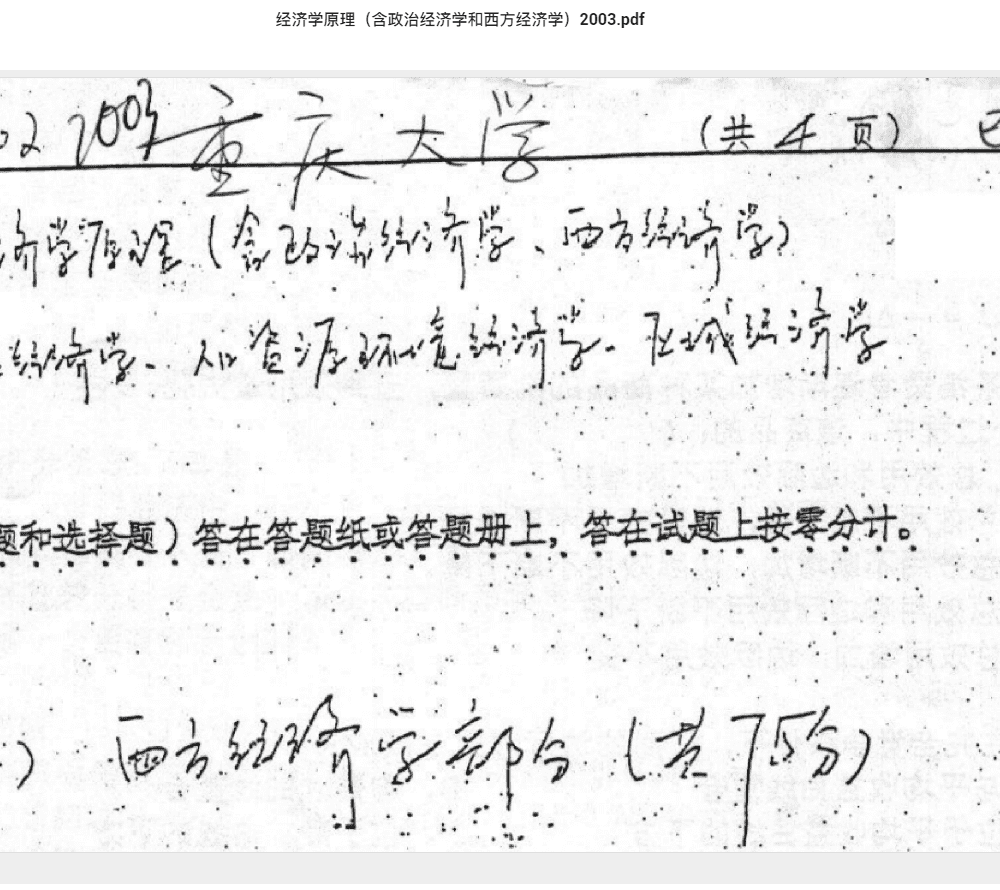 经济学原理（含政治经济学和西方经济学）2003.pdf
02 2003 重庆大学 （共 4 页）
济学原理（含政治经济学、西方经济学）
经济学、人口资源环境经济学、区域经济学
题和选择题）答在答题纸或答题册上，答在试题上按零分计。
） 西方经济学部分（共75分）